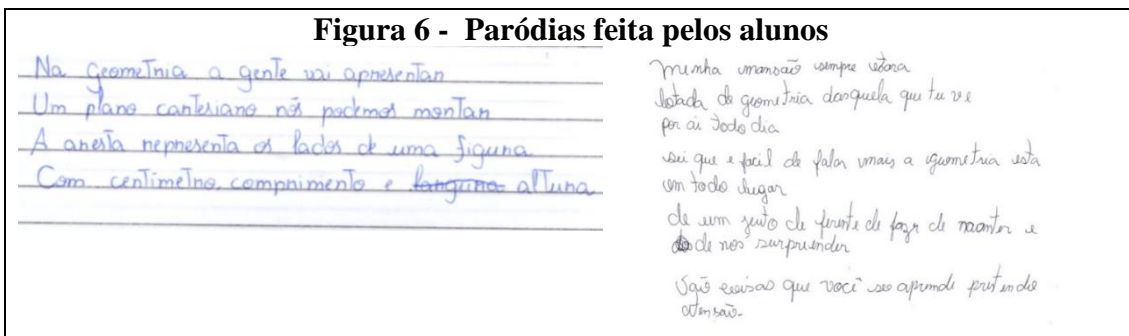 Figura 6 - Paródias feita pelos alunos
Na Geometria a gente vai apresentar
Um plano cartesiano nós podemos montar
A aresta representa os lados de uma figura
Com centímetro, comprimento e largura altura
minha mansão sempre
lotada de geometria daquela que tu ve
por ai todo dia
sei que e facil de falar mais a geometria esta
em todo lugar
de um jeito de de de manter e
de nos surpreender
São coisas que você so aprende
atensão.